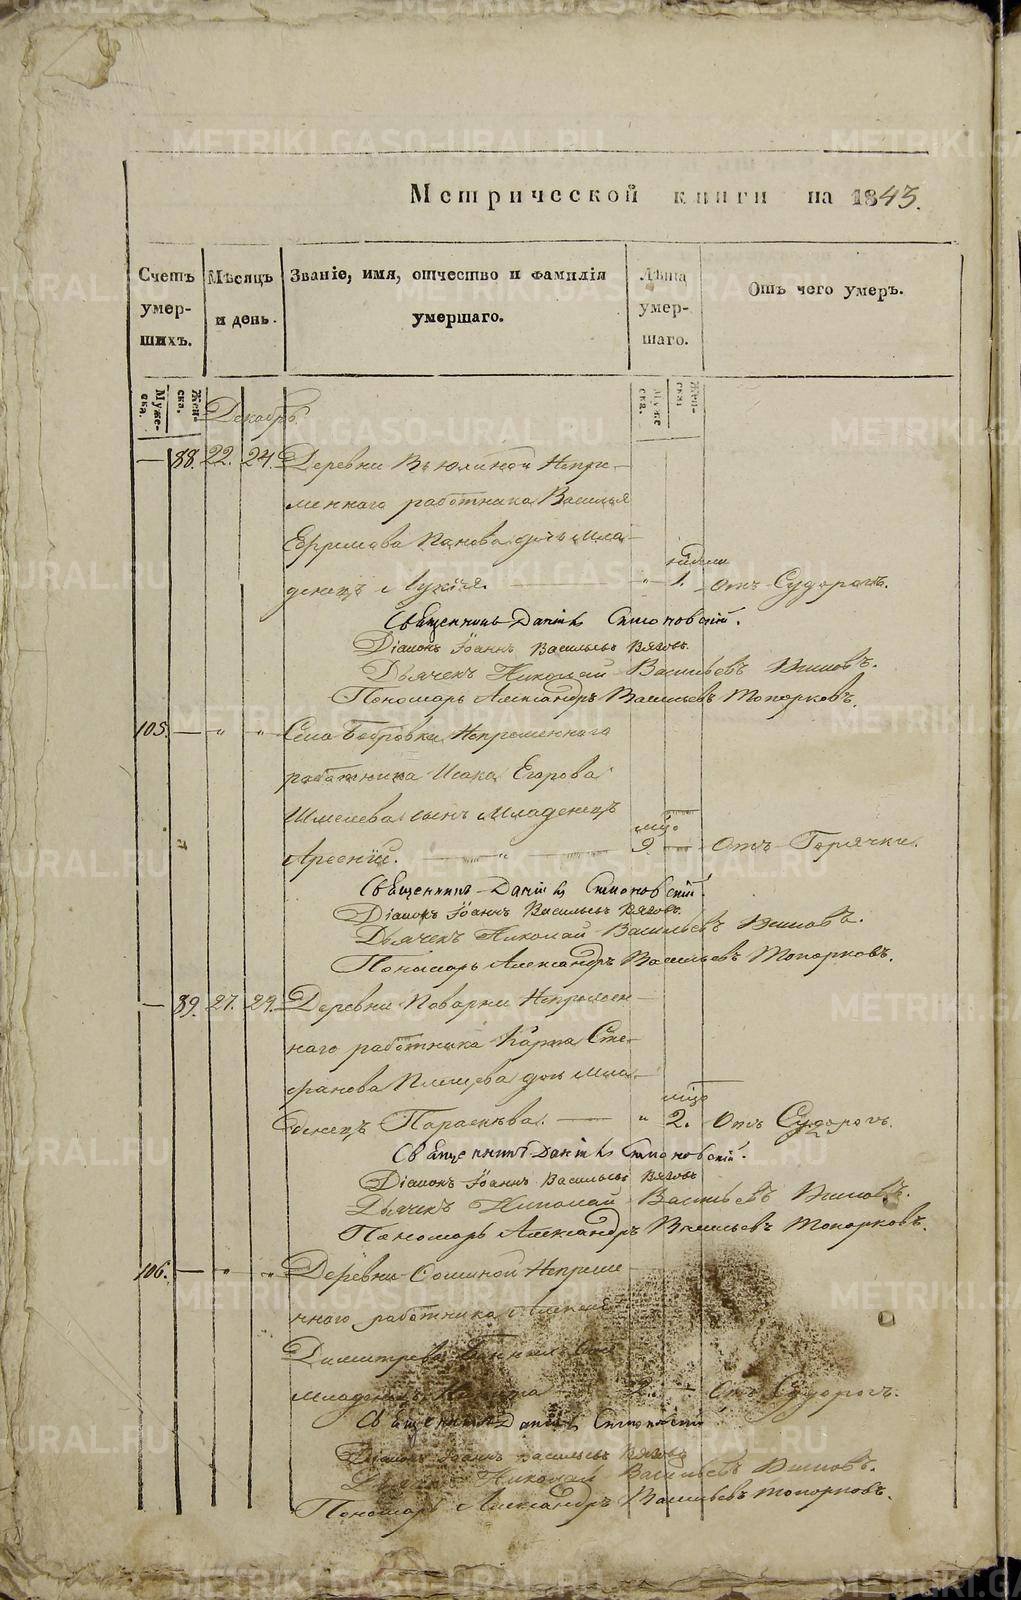 Метрической книги на 1843.
Счетъ умер-шихъ.
Мѣсяцъ и день.
Званіе, имя, отчество и фамилія умершаго.
Лѣта умер-шаго.
Отъ чего умеръ.
Муже-ска.
Жен-ска.
Муже ска.
Жен-ска
Декабрь.
— 88. 22. 24. Деревни Вьюхиной Непре-
меннаго работника Василья
Ефремова Панова дочь мла-
денецъ Лукія. — " 1. недели Отъ Судорогъ.
Священникъ Даніилъ Симоновскій.
Діаконъ Іоаннъ Васильевъ Вяговъ.
Дьячекъ Николай Васильевъ
Пономарь Александръ Васильевъ Топорковъ.
105. — " " Села Бобровки Непременнаго
работника Исака Егорова
Шмелева сынъ Младенецъ
Арсеній. — " — 9 мѣс. — Отъ Горячки.
Священникъ Даніилъ Симоновскій.
Діаконъ Іоаннъ Васильевъ Вяговъ.
Дьячекъ Николай Васильевъ
Пономарь Александръ Васильевъ Топорковъ.
— 89. 27. 29. Деревни Поварни Непремен-
наго работника Карпа Сте-
фанова Плещева дочь мла-
денецъ Параскѣва. — " 2. мѣс Отъ Судорогъ.
Священникъ Даніилъ Симоновскій.
Діаконъ Іоаннъ Васильевъ Вяговъ
Дьячекъ Николай Васильевъ
Пономарь Александръ Васильевъ Топорковъ.
106. — " " Деревни Сошиной Непреме-
ннаго работника Алексея
Димитрева сынъ
Младенецъ 2. — Отъ Судорогъ.
Священникъ Даніилъ Симоновскій
Діаконъ Іоаннъ Васильевъ Вяговъ
Николай Васильевъ
Пономарь Александръ Васильевъ Топорковъ.
METRIKI.GASO-URAL.RU